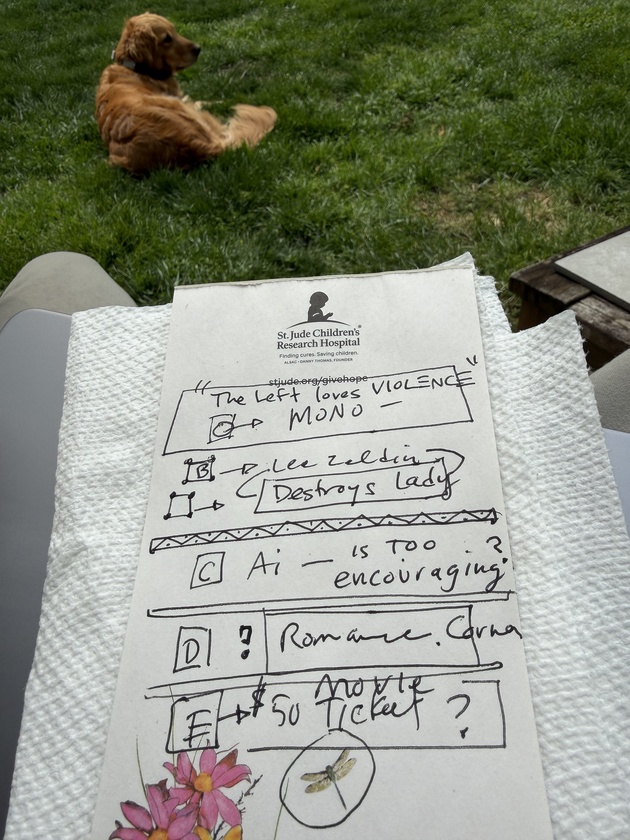 St. Jude Children's®
Research Hospital
Finding cures. Saving children.
ALSAC • DANNY THOMAS, FOUNDER
stjude.org/givehope
"The Left loves VIOLENCE"
MONO —
B Lee zeldin
Destroys Lady
C Ai — is Too
encouraging?
D ? Romance. Corner
E $50 Movie
Ticket ?